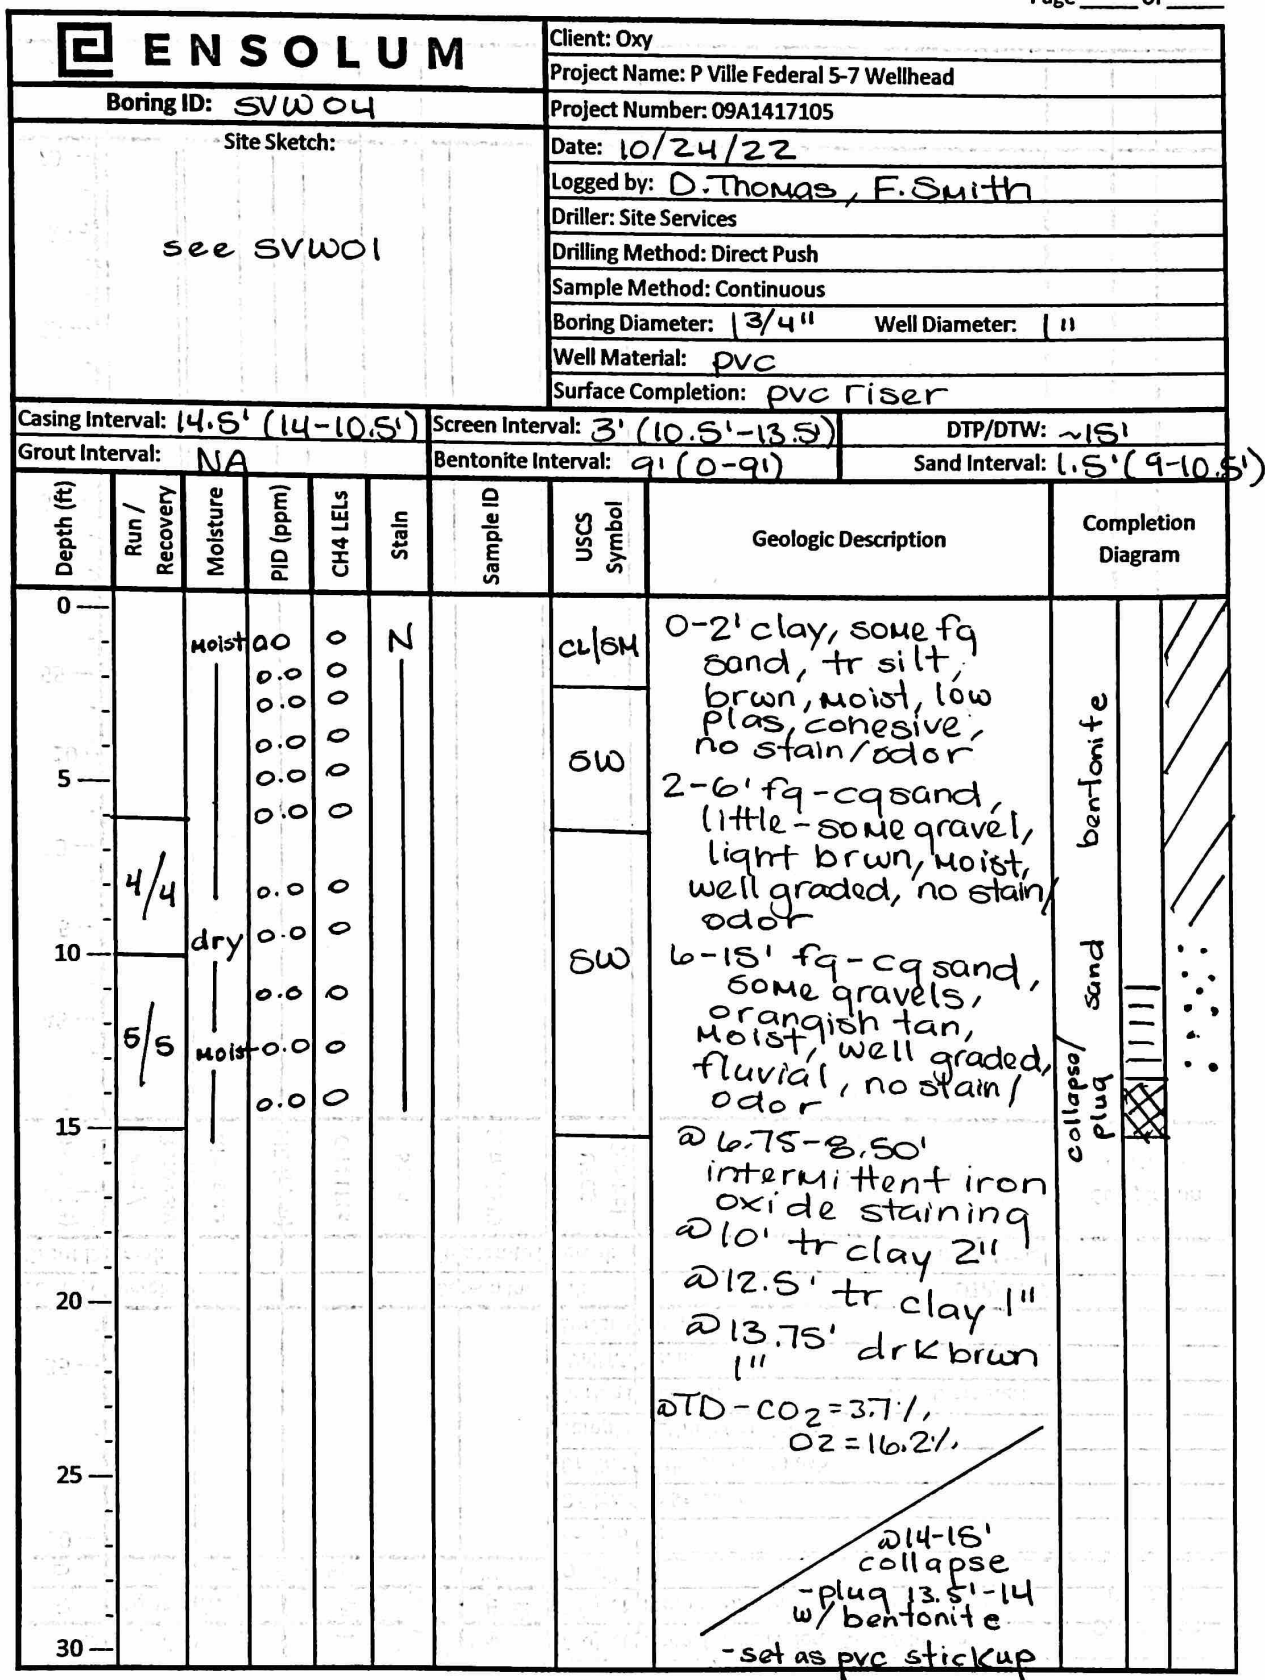 Page ____ of ____
ENSOLUM
Boring ID: SVW04
Site Sketch:
see SVW01
Client: Oxy
Project Name: P Ville Federal 5-7 Wellhead
Project Number: 09A1417105
Date: 10/24/22
Logged by: D. Thomas, F. Smith
Driller: Site Services
Drilling Method: Direct Push
Sample Method: Continuous
Boring Diameter: 1 3/4" Well Diameter: 1"
Well Material: pvc
Surface Completion: pvc riser
Casing Interval: 14.5' (14-10.5') Screen Interval: 3' (10.5'-13.5') DTP/DTW: ~15'
Grout Interval: NA Bentonite Interval: 9' (0-9') Sand Interval: 1.5' (9-10.5')
Depth (ft)
Run / Recovery
Moisture
PID (ppm)
CH4 LELs
Stain
Sample ID
USCS Symbol
Geologic Description
Completion Diagram
0
5
10
15
20
25
30
4/4
5/5
moist
dry
moist
0.0 0
0.0 0
0.0 0
0.0 0
0.0 0
0.0 0
0.0 0
0.0 0
0.0 0
0.0 0
0.0 0
N
CL/SM
SW
SW
0-2' clay, some fg
sand, tr silt,
brwn, moist, low
plas, cohesive,
no stain/odor
2-6' fg-cg sand,
little-some gravel,
light brwn, moist,
well graded, no stain/
odor
6-15' fg-cg sand,
some gravels,
orangish tan,
moist, well graded,
fluvial, no stain/
odor
@ 6.75-8.50'
intermittent iron
oxide staining
@ 10' tr clay 2"
@ 12.5' tr clay 1"
@ 13.75' drk brwn
1"
@TD - CO2 = 3.7%,
O2 = 16.2%,
@14-15'
collapse
-plug 13.5'-14
w/ bentonite
-set as pvc stickup
bentonite
sand
collapse/
plug